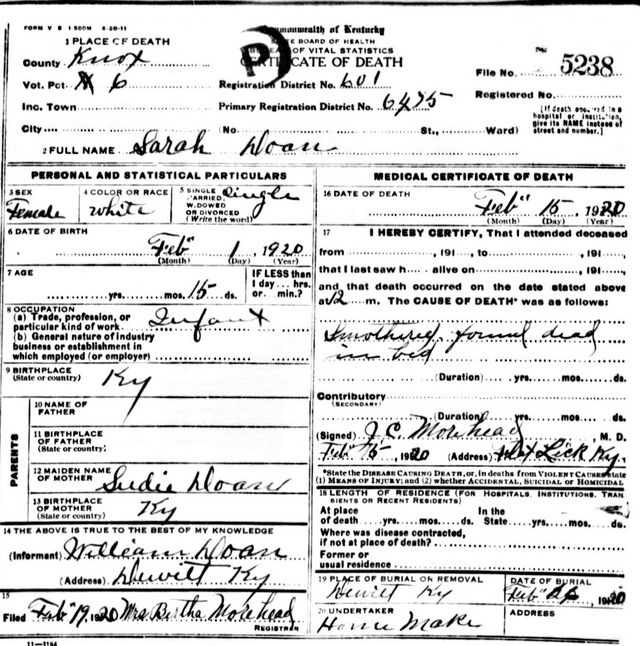 FORM V S 1 500M 8-20-11
Commonwealth of Kentucky
STATE BOARD OF HEALTH
BUREAU OF VITAL STATISTICS
CERTIFICATE OF DEATH
P
1 PLACE OF DEATH
County Knox
Vot. Pct. 6
Inc. Town
City
Registration District No. 601
Primary Registration District No. 6475
(No. St., Ward)
File No. 5238
Registered No.
[If death occurred in a
hospital or institution,
give its NAME instead of
street and number.]
2 FULL NAME Sarah Doan
PERSONAL AND STATISTICAL PARTICULARS
3 SEX
Female
4 COLOR OR RACE
White
5 SINGLE
MARRIED,
WIDOWED
OR DIVORCED
(Write the word)
Single
6 DATE OF BIRTH
Feb" 1, 1920
(Month) (Day) (Year)
7 AGE
yrs. mos. 15 ds.
IF LESS than
1 day... hrs.
or min.?
8 OCCUPATION
(a) Trade, profession, or
particular kind of work Infant
(b) General nature of industry
business or establishment in
which employed (or employer)
9 BIRTHPLACE
(State or country) Ky
PARENTS
10 NAME OF
FATHER
11 BIRTHPLACE
OF FATHER
(State or country)
12 MAIDEN NAME
OF MOTHER Sudie Doan
13 BIRTHPLACE
OF MOTHER
(State or country) Ky
14 THE ABOVE IS TRUE TO THE BEST OF MY KNOWLEDGE
(Informant) William Doan
(Address) Dewitt Ky
15
Filed Feb" 19, 1920 Mrs Bertha Morehead
REGISTRAR
11-3184
MEDICAL CERTIFICATE OF DEATH
16 DATE OF DEATH
Feb" 15, 1920
(Month) (Day) (Year)
17 I HEREBY CERTIFY, That I attended deceased
from , 191 , to , 191 ,
that I last saw h alive on , 191 ,
and that death occurred on the date stated above
at 12 m. The CAUSE OF DEATH* was as follows:
Smothered, found dead
in bed
(Duration) yrs. mos. ds.
Contributory
(SECONDARY)
(Duration) yrs. mos. ds.
(Signed) J.C. Morehead, M. D.
Feb" 15, 1920 (Address) Flat Lick Ky.
*State the DISEASE CAUSING DEATH, or, in deaths from VIOLENT CAUSES state
(1) MEANS OF INJURY; and (2) whether ACCIDENTAL, SUICIDAL or HOMICIDAL
18 LENGTH OF RESIDENCE (FOR HOSPITALS, INSTITUTIONS, TRAN
SIENTS OR RECENT RESIDENTS)
At place In the
of death yrs. mos. ds. State yrs. mos. ds.
Where was disease contracted,
if not at place of death?
Former or
usual residence
19 PLACE OF BURIAL OR REMOVAL
Dewitt Ky
DATE OF BURIAL
Feb" 1920
20 UNDERTAKER
Home Make
ADDRESS